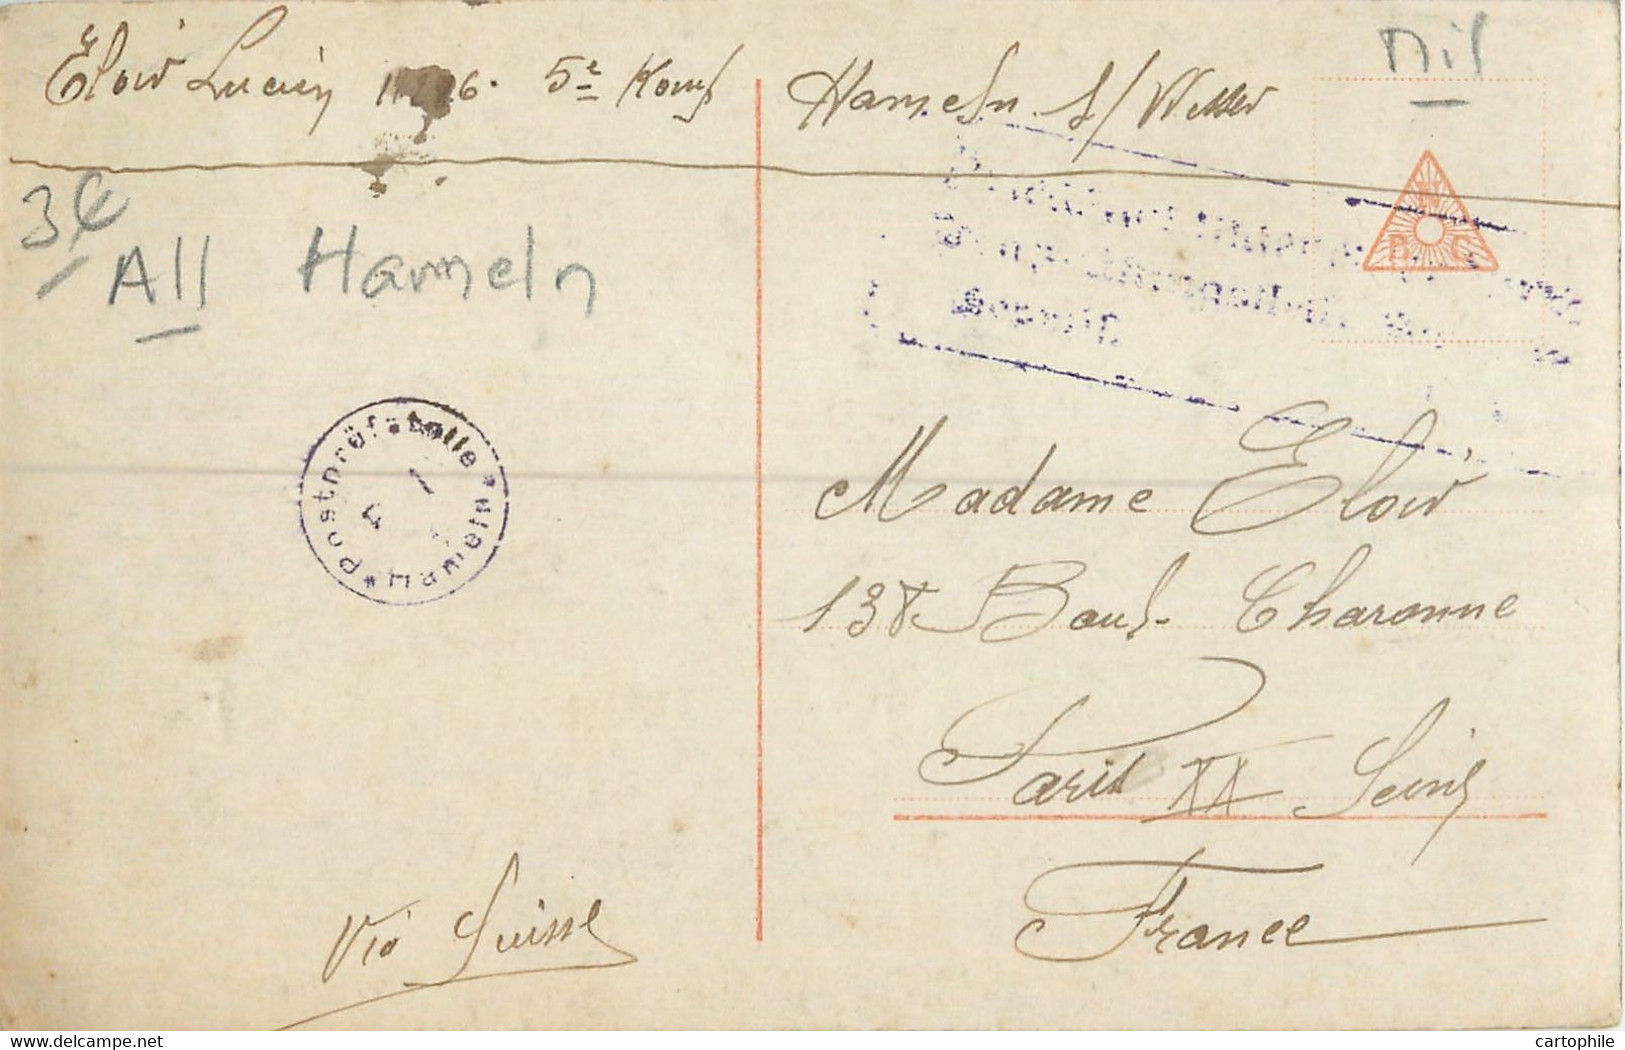 Eloir Lucien 5e Komp Hameln s/Weser
mil
3€
All Hameln
N
B G
Postprüfstelle * Hameln *
Madame Eloir
138 Boul. Charonne
Paris XX Seine
France
Via Suisse
delcampe.net
cartophile